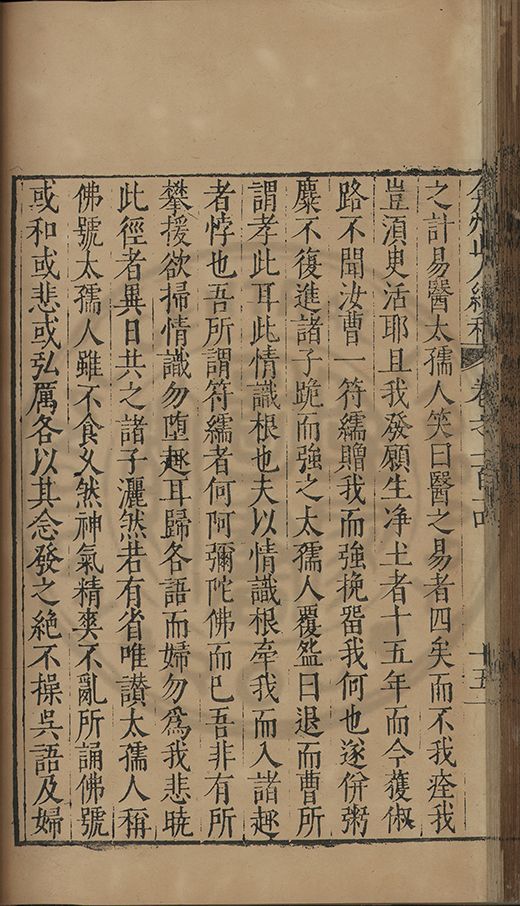 弇州山人續稿 卷之一百一 十五
之計易醫太孺人笑曰醫之易者四矣而不我痊我
豈湏㬰活耶且我發願生净土者十五年而今獲俶
路不聞汝曹一符繻贈我而強挽畱我何也遂併粥
麋不復進諸子跪而強之太孺人覆盌曰退而曹所
謂孝此耳此情識根也夫以情識根牽我而入諸趣
者悖也吾所謂符繻者何阿彌陀佛而巳吾非有所
攀援欲掃情識勿墮趣耳歸各語而婦勿為我悲曉
此徑者異日共之諸子灑然若有省唯讃太孺人稱
佛號太孺人雖不食乆然神氣精爽不亂所誦佛號
或和或悲或弘厲各以其念發之絶不操吳語及婦